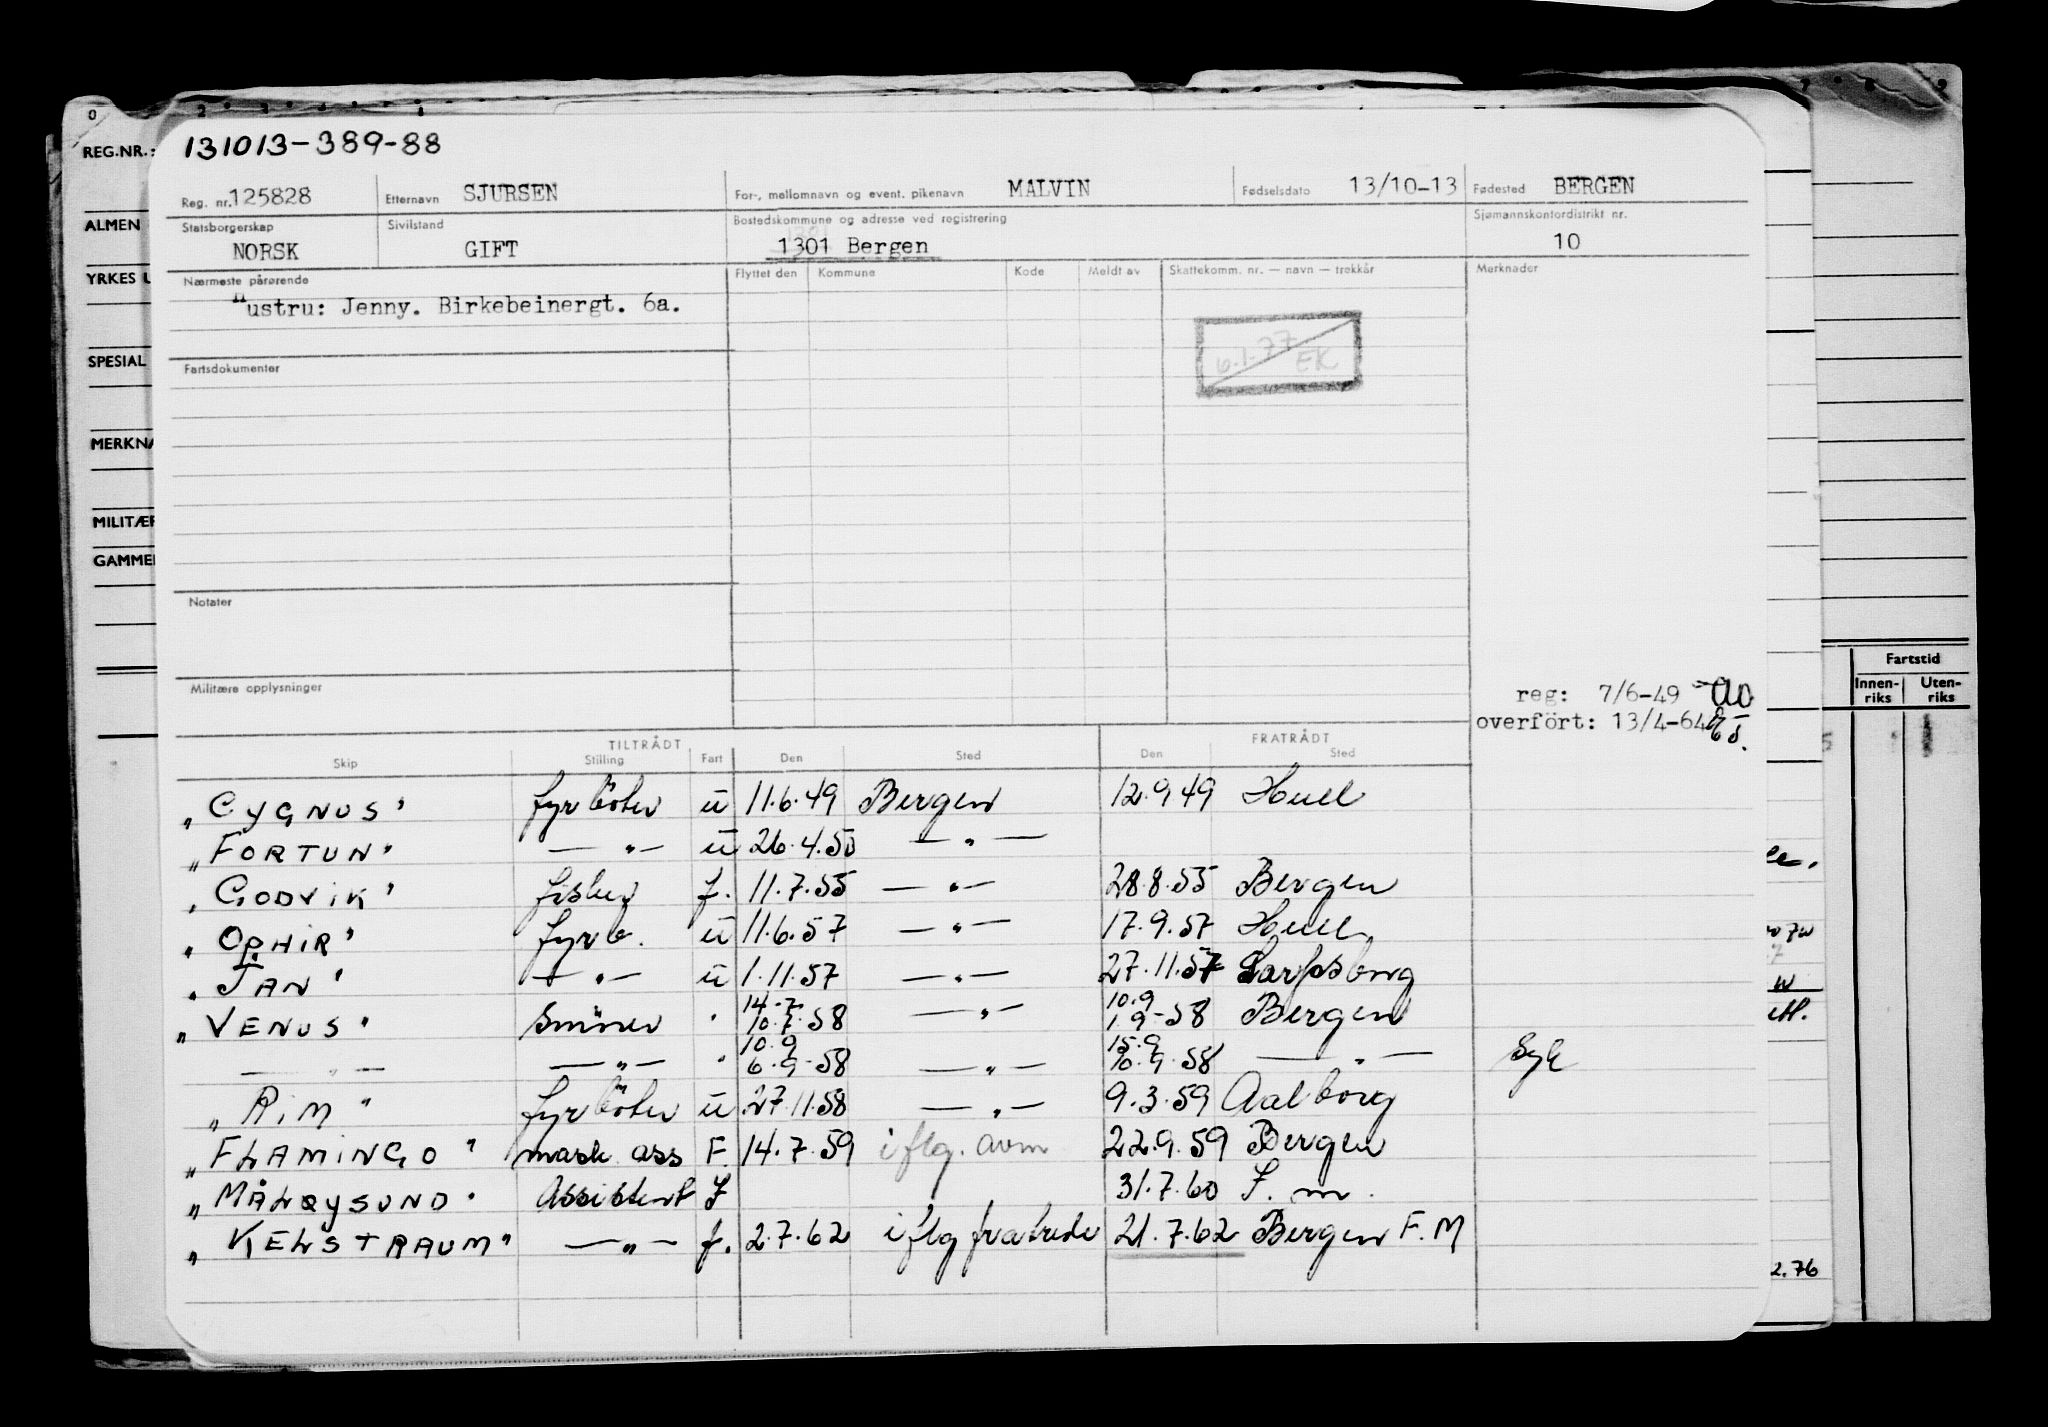 131013-389-88
REG.NR.:
Reg. nr. 125828 Etternavn SJURSEN For-, mellomnavn og event. pikenavn MALVIN Fødselsdato 13/10-13 Fødested BERGEN
ALMEN
Statsborgerskap NORSK Sivilstand GIFT Bostedskommune og adresse ved registrering 1301 Bergen Sjømannskontordistrikt nr. 10
YRKES U
Nærmeste pårørende Flyttet den Kommune Kode Meldt av Skattekomm. nr. — navn — trekkår Merknader
Hustru: Jenny. Birkebeinergt. 6a.
6.1.77 EK
SPESIAL
Fartsdokumenter
MERKNA
MILITÆR
GAMMEL
Notater
Fartstid
Innen-riks Uten-riks
Militære opplysninger
reg: 7/6-49
overført: 13/4-64
TILTRÅDT FRATRÅDT
Skip Stilling Fart Den Sted Den Sted
"CYGNUS" fyrböter u 11.6.49 Bergen 12.9.49 Hull
"FORTUN" — " — u 26.4.50 — " —
"GODVIK" fisker f. 11.7.55 — " — 28.8.55 Bergen
"OPHIR" fyrb. u 11.6.57 — " — 17.9.57 Hull
"JAN" — " — u 1.11.57 — " — 27.11.57 Sarpsborg
"VENUS" Smörer " 14-7 10.7.58 — " — 10.9 1.9-58 Bergen
— " — — " — " 10.9 6.9-58 — " — 15.9 10.9.58 — " — Syk
"RIM" fyrböter u 27.11.58 — " — 9.3.59 Aalborg
"FLAMINGO" mask ass F. 14.7.59 i flg. avm 22.9.59 Bergen
"MÅLØYSUND" Assistent f 31.7.60 F.m.
"KELSTRAUM" — " — f. 2.7.62 i flg fratrede 21.7.62 Bergen F.M
2.76